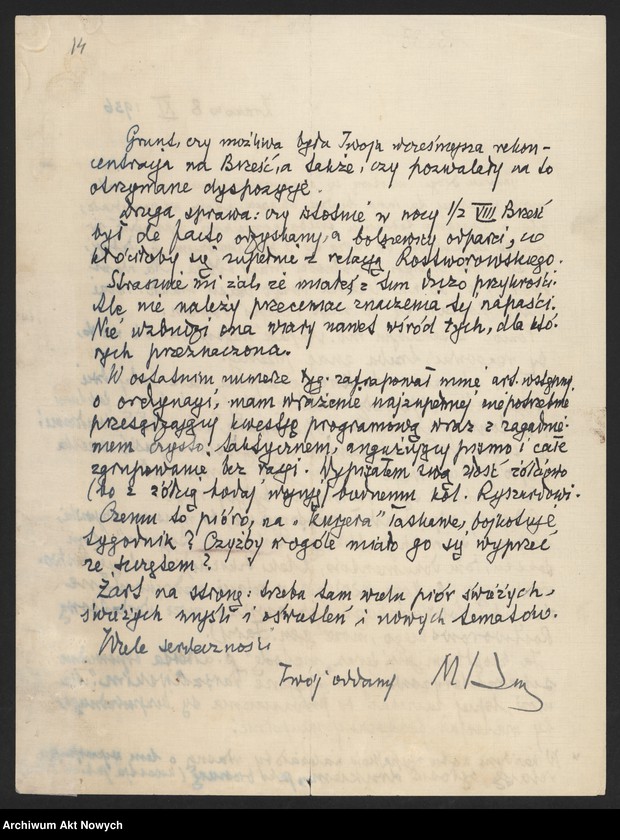 14
Grunt, czy możliwa była Twoja wcześniejsza rekon-
centracja na Brześć, a także, czy pozwalały na to
otrzymane dyspozycje.
Druga sprawa: czy istotnie w nocy 1/2 VIII Brześć
był de facto odzyskany, a bolszewicy odparci, co
kłóciłoby się zupełnie z relacją Rostworowskiego.
Strasznie mi żal, że miałeś z tym dużo przykrości.
Ale nie należy przeceniać znaczenia tej napaści.
Nie wzbudzi ona wiary nawet wśród tych, dla któ-
rych przeznaczona.
W ostatnim numerze tyg. zafrapował mnie art. wstępny
o ordynacji, mam wrażenie najzupełniej niepotrzebnie
przesądzający kwestję programową wraz z zagadnie-
niem czysto taktycznem, angażujący pismo i całe
zgrupowanie bez racji. Wypisałem swą złość żółciowo
(bo z żółcią bodaj wyższej) biednemu kol. Ryszardowi.
Czemu to pióro, na „Kurjera" łaskawe, bojkotuje
tygodnik? Czyżby wogóle miało go się wyprzeć
ze szczętem?
Żart na stronę: trzeba tam wielu piór świeżych,
świeżych myśli i oświetleń i nowych tematów.
Wiele serdeczności
Twój oddany
Archiwum Akt Nowych